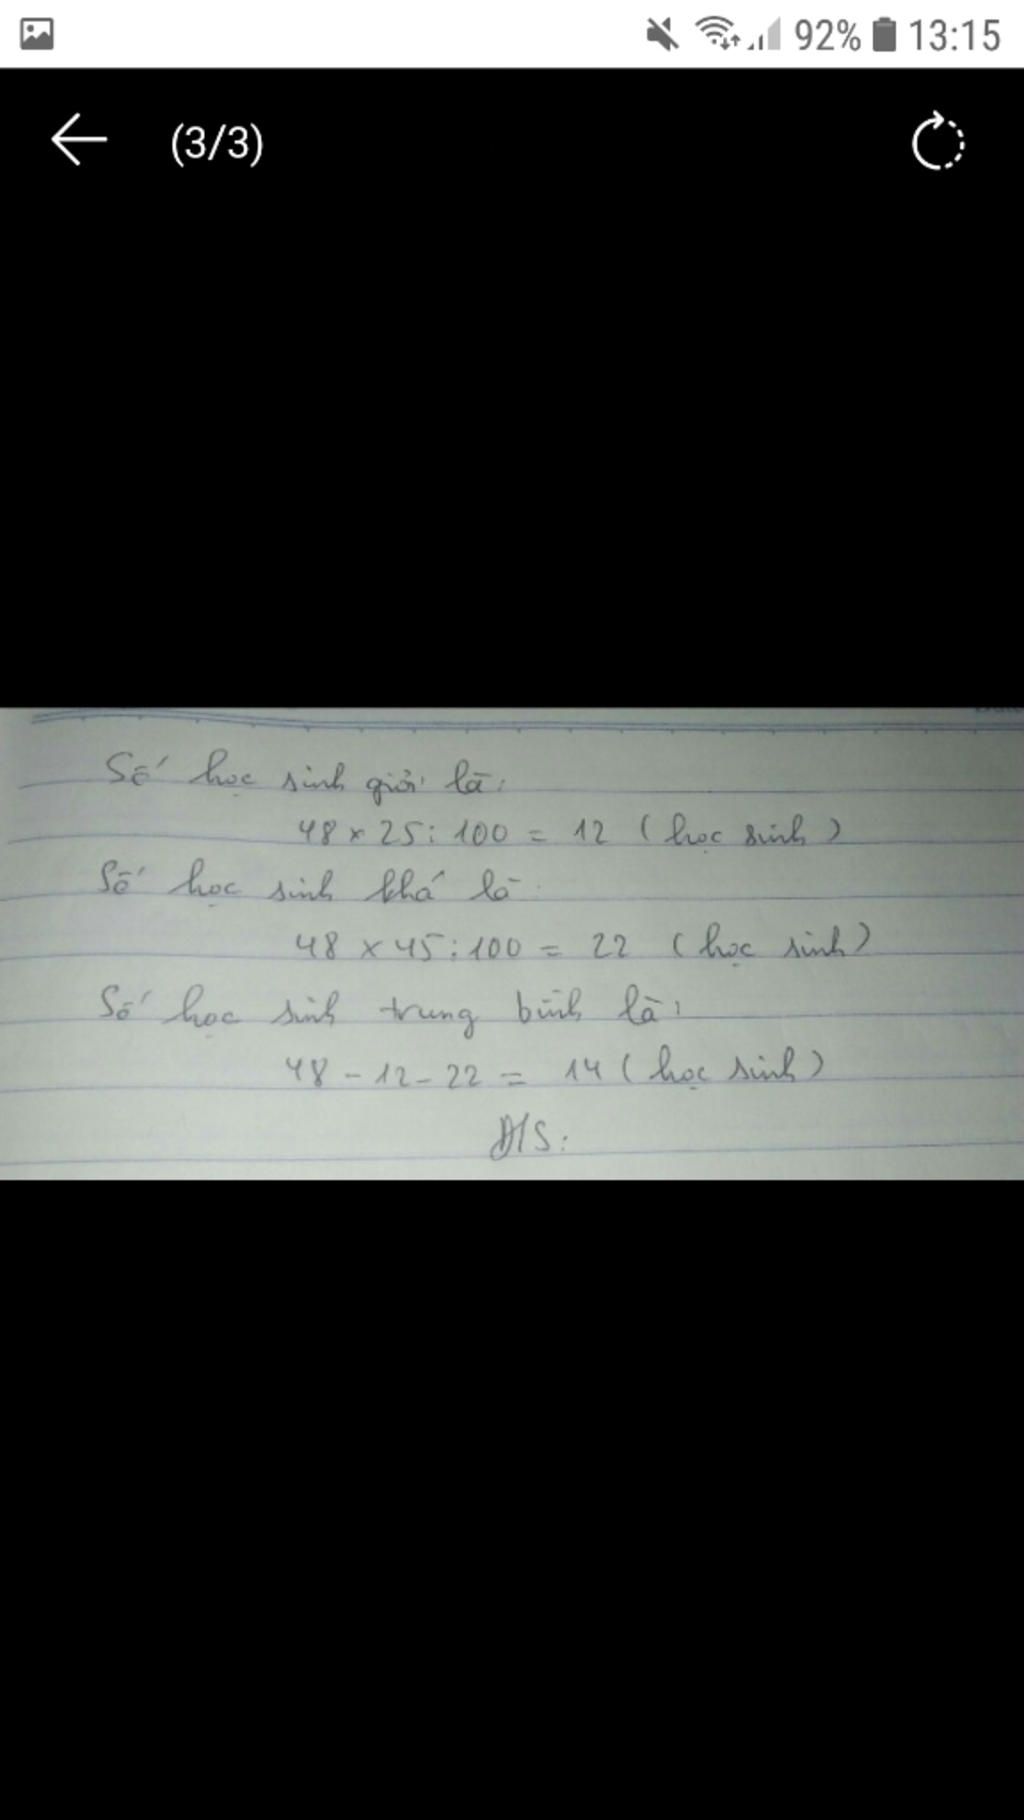 92% 13:15
(3/3)
Số học sinh giỏi là:
48 x 25 : 100 = 12 ( học sinh )
Số học sinh khá là
48 x 45 : 100 = 22 ( học sinh )
Số học sinh trung bình là:
48 - 12 - 22 = 14 ( học sinh )
Đ/S: